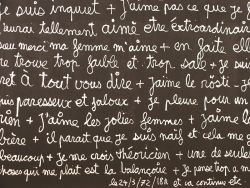 je suis inquiet + j'aime pas ce que je
j'aurai tellement aimé être extraordinair
sau merci ma femme m'aime + en faite elle
me trouve trop faible et trop salo + je sui
ret à tout vous dire + j'aime le rösti - je
uis paresseux et jaloux + je pleure pour un
ien + j'aime les jolies femmes + j'aime l
bière + il parait que je suis naïf et cela me g
beaucoup + je me crois théoricien + une de seules
choses qui me plait est la balançoire + je pense trop, a va
le 24/3/72/18h et ca continue et